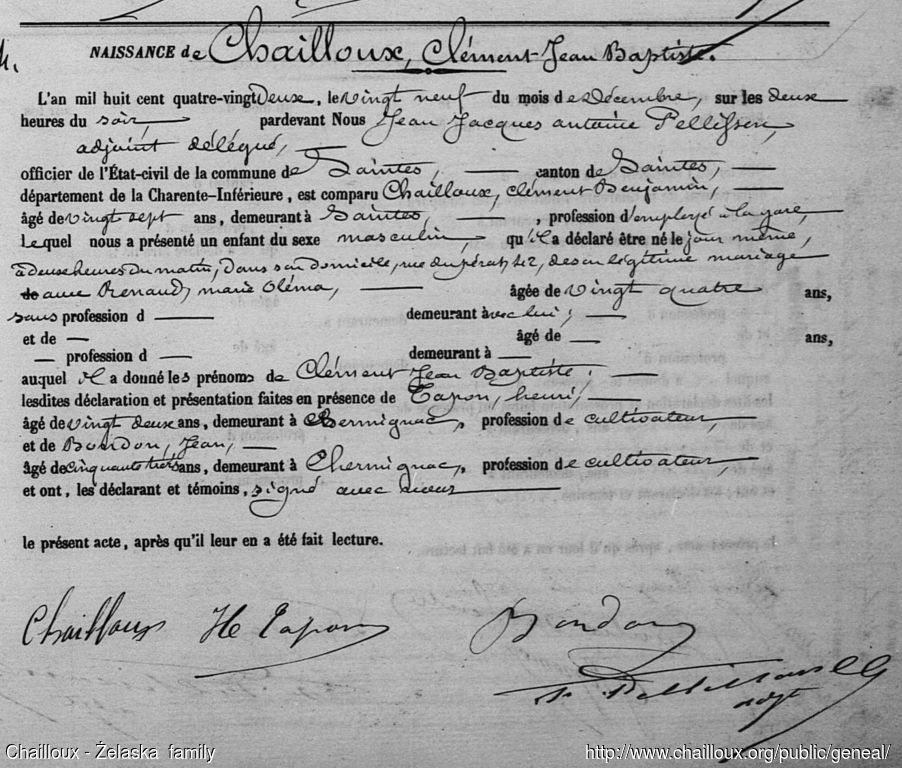 NAISSANCE de Chailloux, Clément Jean Baptiste.
L'an mil huit cent quatre-vingt Deux, le vingt neuf du mois de Décembre, sur les deux
heures du soir, pardevant Nous Jean Jacques antoine
adjoint délégué,
officier de l'État-civil de la commune de Saintes, canton de Saintes,
département de la Charente-Inférieure, est comparu Chailloux, clément Benjamin,
âgé de vingt sept ans, demeurant à Saintes, , profession d'employé à la gare,
Lequel nous a présenté un enfant du sexe masculin, qu'il a déclaré être né le jour même,
à deux heures du matin, dans son domicile, rue du pérat, 42, de son légitime mariage
de avec Renaud, marie oléma, âgée de vingt quatre ans,
sans profession d demeurant avec lui;
et de âgé de ans,
profession d demeurant à
auquel il a donné les prénoms de Clément Jean Baptiste;
lesdites déclaration et présentation faites en présence de Tapon, henri,
âgé de vingt deux ans, demeurant à Chermignac, profession de cultivateur,
et de Bourdon, Jean,
âgé de cinquante trois ans, demeurant à Chermignac, profession de cultivateur,
et ont, les déclarant et témoins, signé avec nous
le présent acte, après qu'il leur en a été fait lecture.
Chailloux H Tapon Bourdon
Chailloux - Želaska family http://www.chailloux.org/public/geneal/